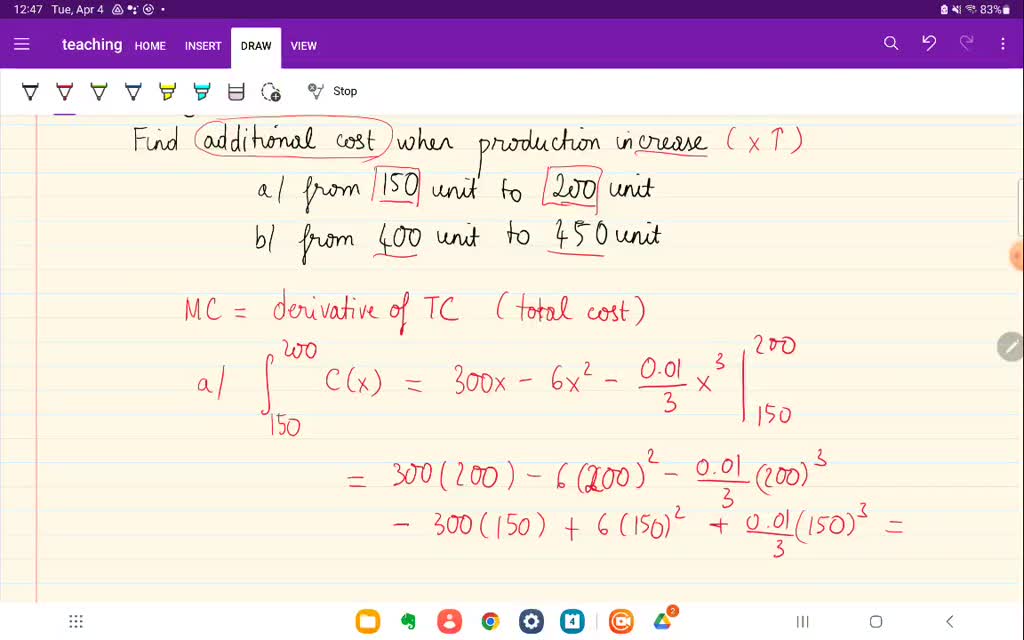 12:47 Tue, Apr 4 83%
teaching HOME INSERT DRAW VIEW
Stop
Find additional cost when production increase (x↑)
a/ from 150 unit to 200 unit
b/ from 400 unit to 450 unit
MC = derivative of TC (total cost)
a/ ∫₁₅₀²⁰⁰ C(x) = 300x - 6x² - 0.01/3 x³ |₁₅₀²⁰⁰
= 300(200) - 6(200)² - 0.01/3 (200)³
- 300(150) + 6(150)² + 0.01/3 (150)³ =
4
2